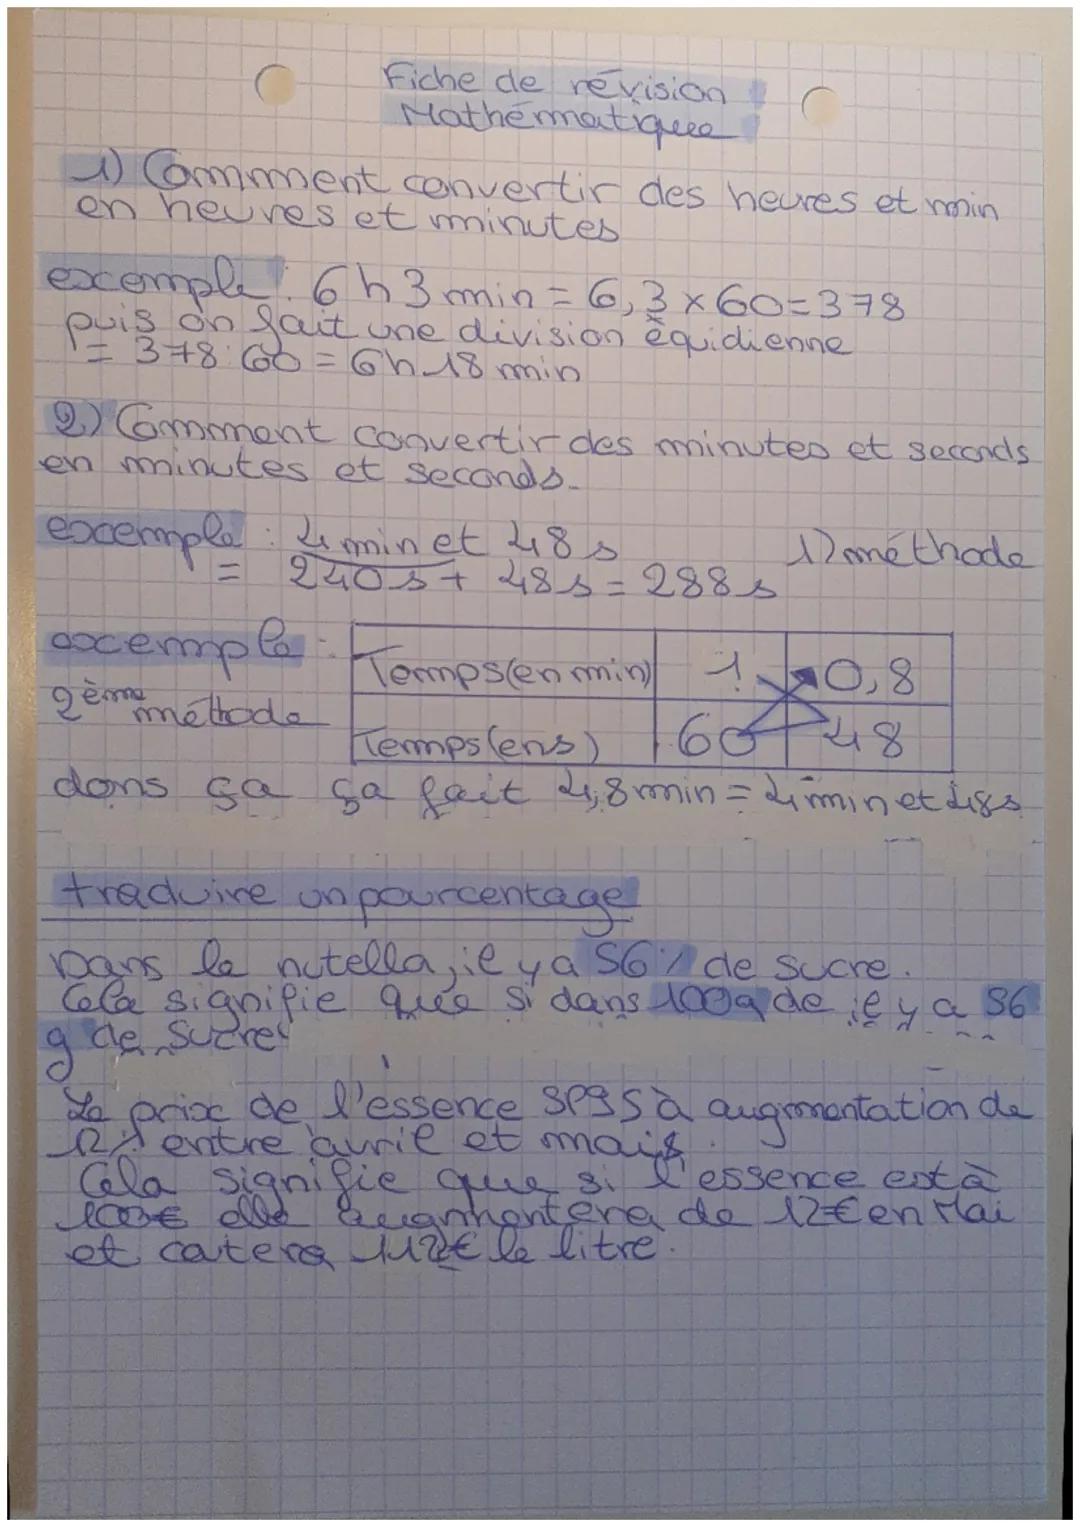 Fiche de révision
Mathématique
1) Comment convertir des heures et min
en heures et minutes
excemple : 6h3min = 6,3 x 60 = 378
puis on fait une division équidienne
= 378:60 = 6h18 min
2) Comment convertir des minutes et seconds
en minutes et seconds.
excemple : 4min et 48s
1) méthode
= 240s + 48s = 288s
excemple :
2ème méthode
Temps(en min) 1 0,8
Temps(ens) 60 48
dans ça ça fait 4,8min = 4min et 48s
traduire un pourcentage
Dans le nutella, il y a 56% de sucre.
Cela signifie que si dans 100g de il y a 56
g de sucre
Le prix de l'essence SP95 à augmentation de
12% entre avril et mais.
Cela signifie que si l'essence est à
100€ elle augmentera de 12€ en Mai
et coutera 112€ le litre.